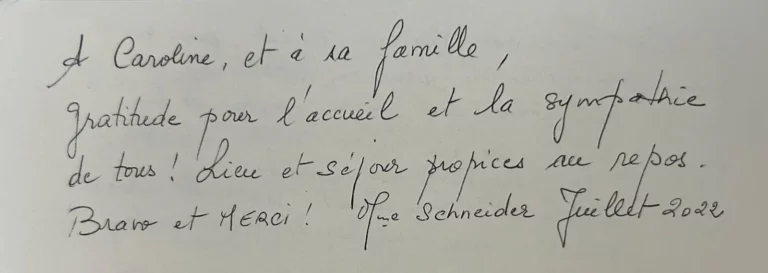 A Caroline, et à sa famille,
gratitude pour l'accueil et la sympathie
de tous ! Lieu et séjour propices au repos.
Bravo et MERCi ! Mme Schneider Juillet 2022